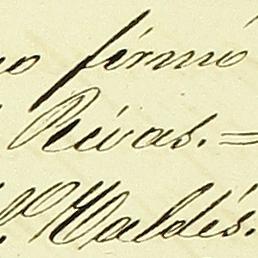 no firmó
Rivas.=
Valdés.